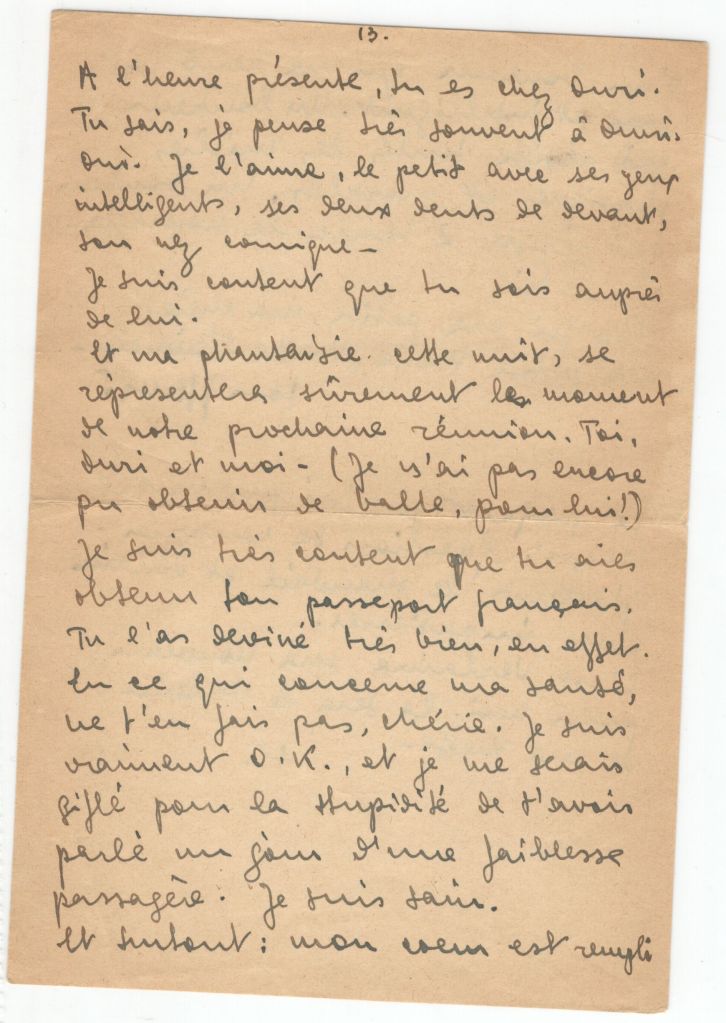 13.
A l'heure présente, tu es chez Duri.
Tu sais, je pense très souvent à Duri-
Duri. Je l'aime, le petit avec ses yeux
intelligents, ses deux dents de devant,
son nez comique —
Je suis content que tu sois auprès
de lui.
Et ma phantaisie cette nuit, se
réprésentera sûrement le moment
de notre prochaine réunion. Toi,
Duri et moi — (Je n'ai pas encore
pu obtenir de balle, pour lui!)
Je suis très content que tu aies
obtenu ton passeport français.
Tu l'as deviné très bien, en effet.
En ce qui concerne ma santé,
ne t'en fais pas, chérie. Je suis
vraiment O.K., et je me serais
giflé pour la stupidité de t'avoir
parlé un jour d'une faiblesse
passagère. Je suis sain.
Et surtout : mon coeur est rempli